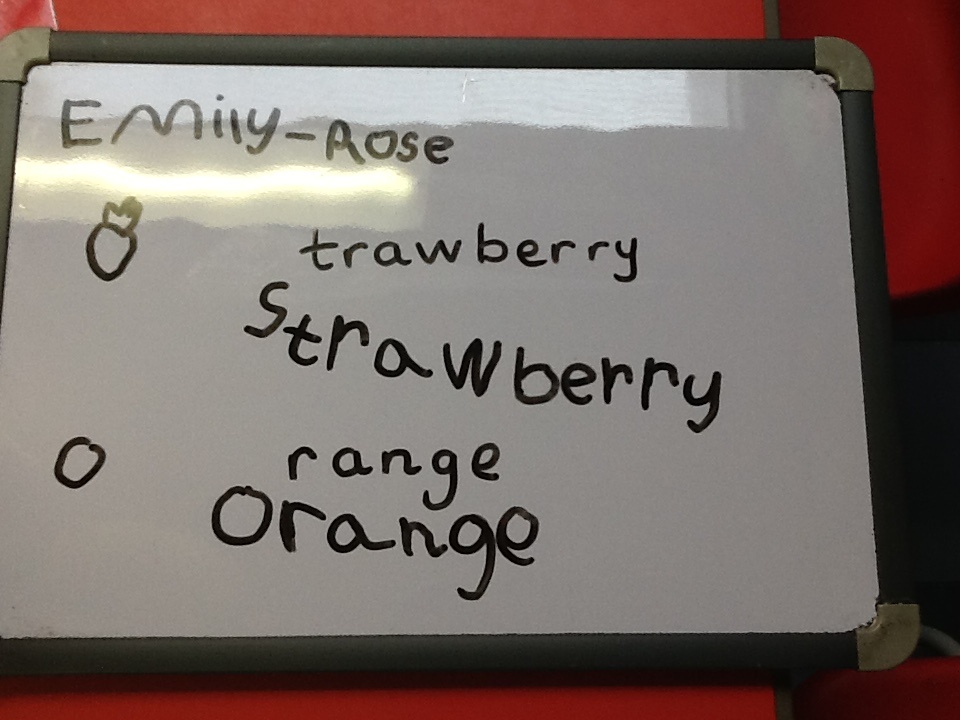 EMily-Rose
trawberry
Strawberry
range
Orange